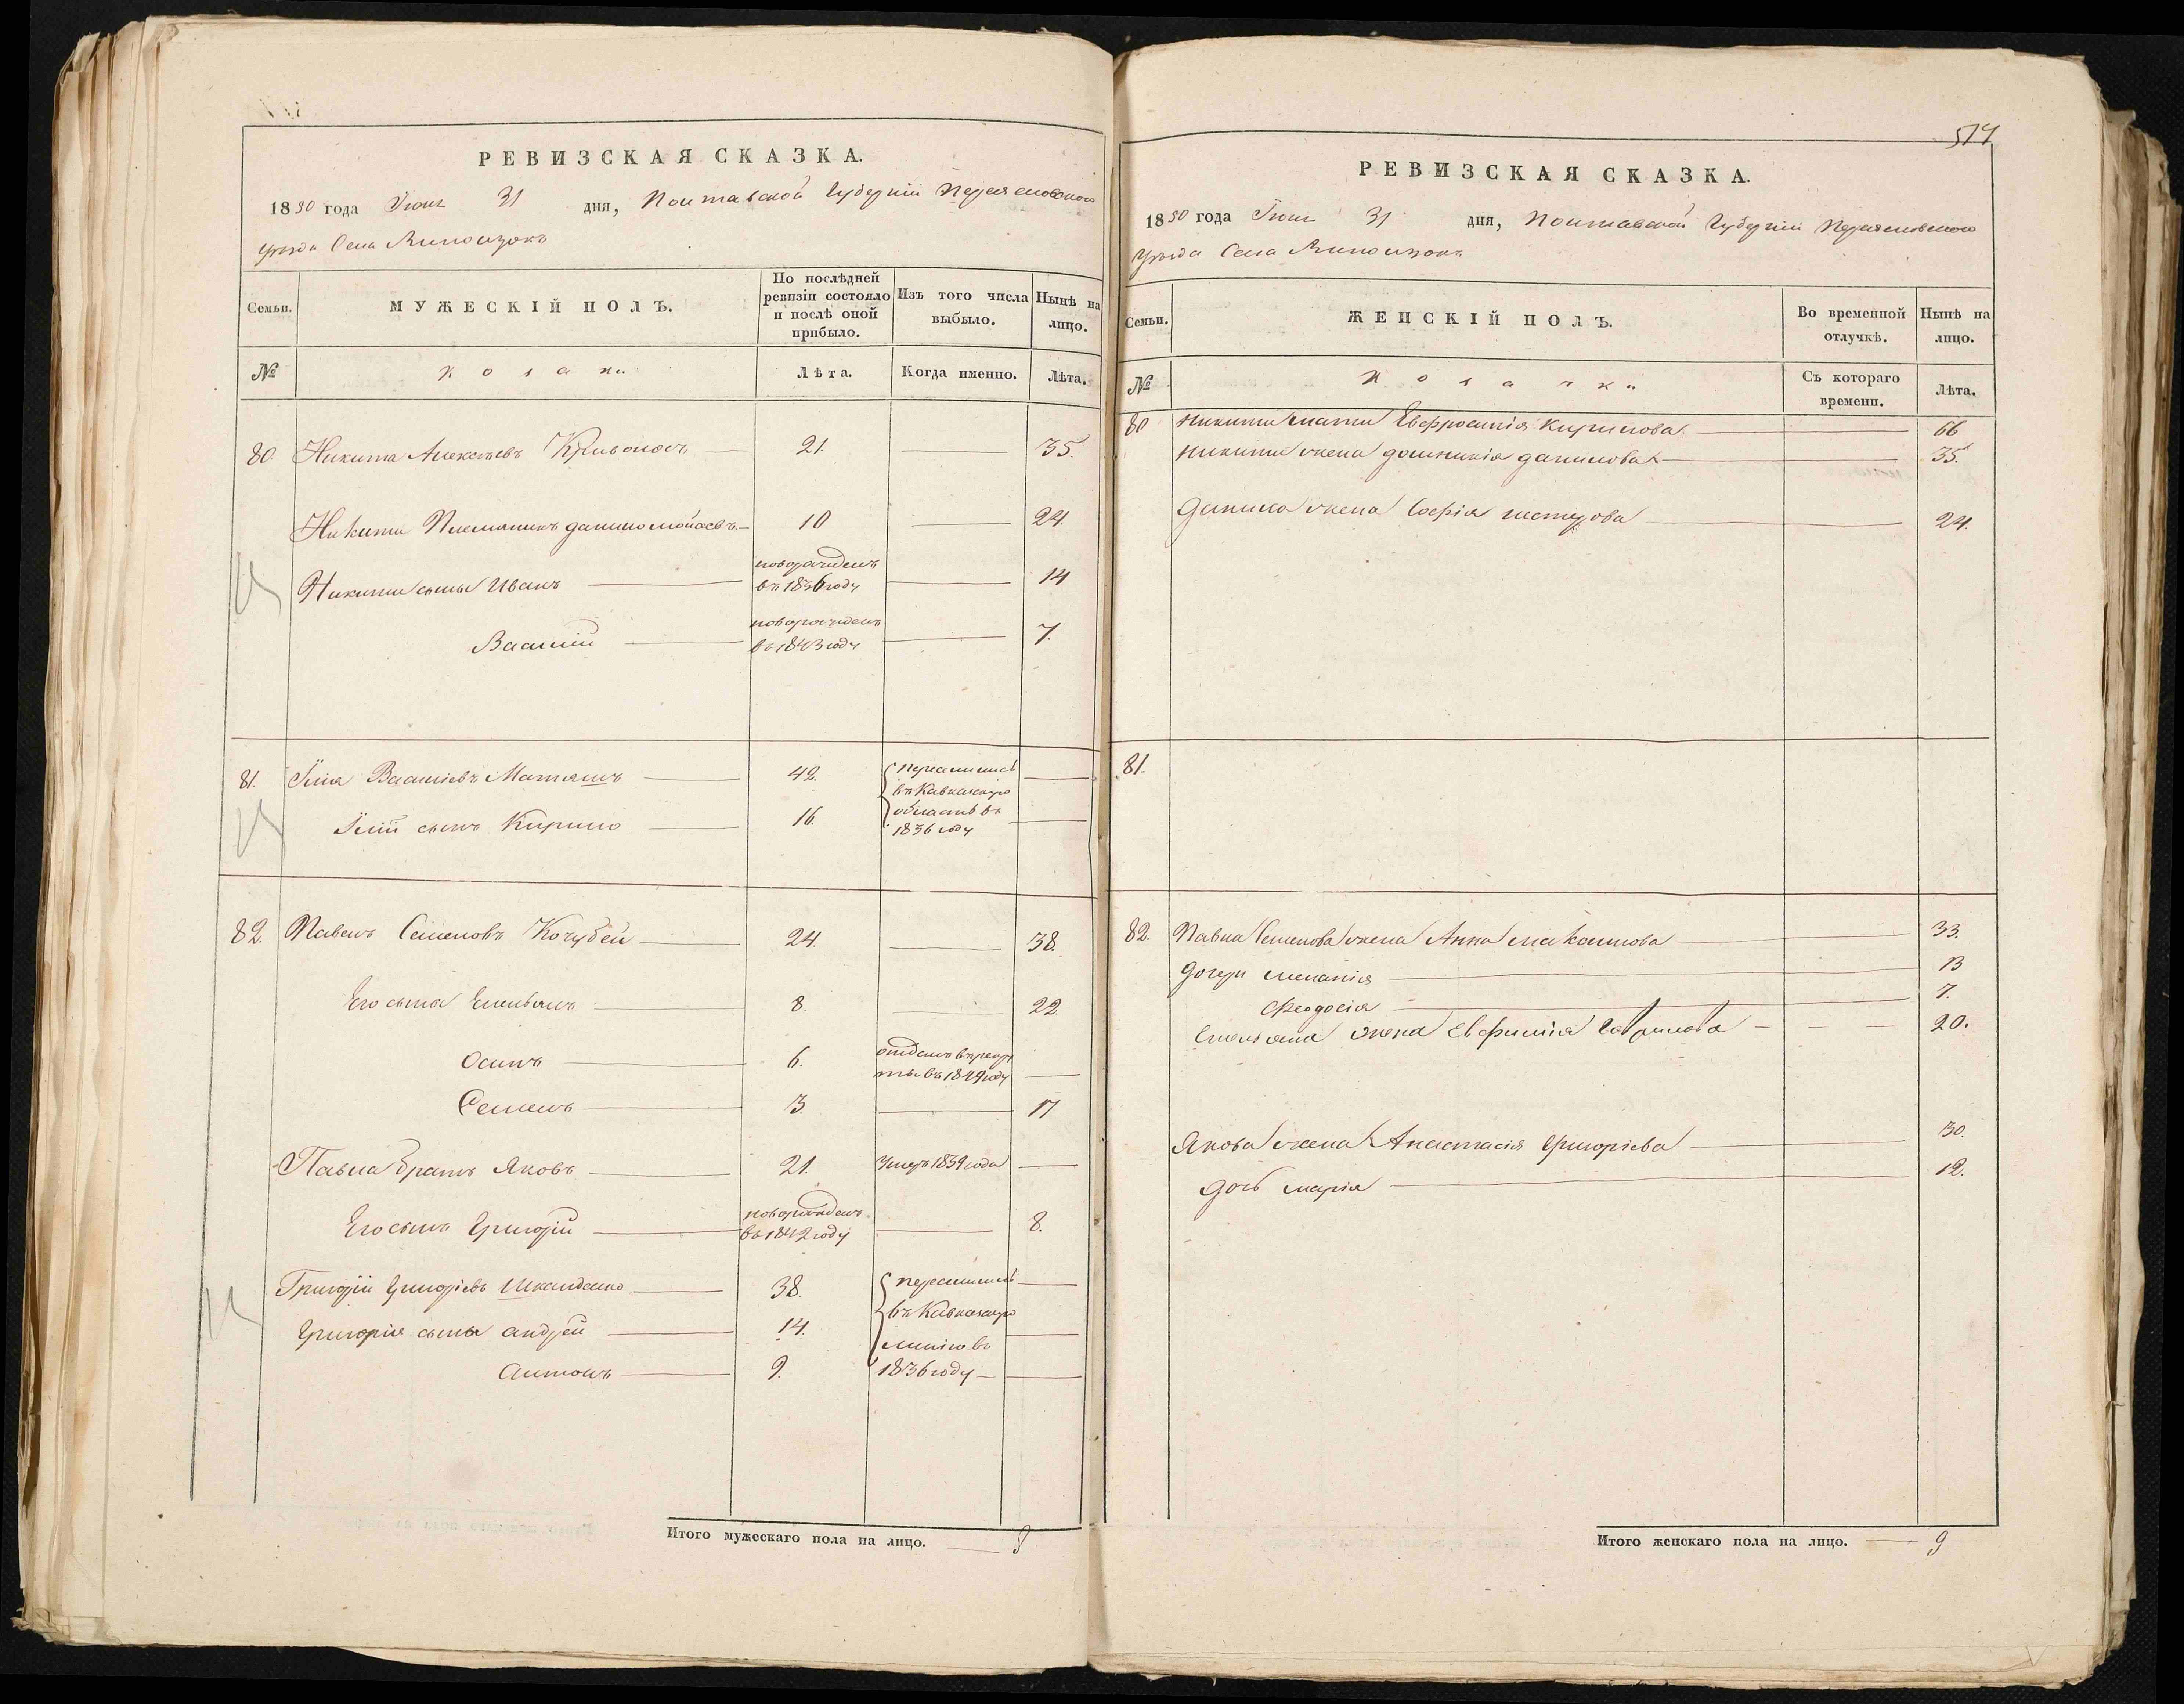 РЕВИЗСКАЯ СКАЗКА.
1850 года Іюня 31 дня, Полтавской Губерніи Переясловского
уѣзда Села
Семьи.
МУЖЕСКІЙ ПОЛЪ.
По послѣдней ревизіи состояло и послѣ оной прибыло.
Изъ того числа выбыло.
Нынѣ на лицо.
№
Козаки
Лѣта.
Когда именно.
Лѣта.
80. Никита Алексѣевъ Кривоносъ 21. 35.
Никиты Племяникъ данило 10 24.
Никиты сыны Иванъ новорожденъ въ 1836 году 14
Василій новорожденъ въ 1843 году 7.
81. Илія Василіевъ Маташъ 42. переселились
въ Кавказскую
Іліи сынъ Кирило 16. область въ
1836 году
82. Павелъ Семеновъ Кочубей 24. 38.
Его сыны Емельянъ 8. 22.
Осипъ 6. отданъ въ рекру
ты въ 1849 году
Семенъ 3. 17
Павла братъ Яковъ 21. Умеръ 1839 года
Его сынъ Григорій новорожденъ въ 1842 году 8.
Григорій Григоріевъ 38. переселились
въ Кавказскую
Григорія сыны андрей 14. линію въ
Антонъ 9. 1836 году
Итого мужескаго пола на лицо.
514
РЕВИЗСКАЯ СКАЗКА.
1850 года Іюня 31 дня, Полтавской Губерніи Переясловского
уѣзда Села
Семьи.
ЖЕНСКІЙ ПОЛЪ.
Во временной отлучкѣ.
Нынѣ на лицо.
№
Козачки
Съ котораго времени.
Лѣта.
80 Никиты мати Евфросинія Кирилова 66
Никиты жена домникія данилова 35.
Данила жена Софія нестерова 24.
81.
82. Павла Семенова жена Анна Максимова 33.
дочери меланія 13
Феодосія 7.
Емельяна жена Евфимія Гаврилова 20.
Якова жена Анастасія Григоріева 30.
дочь марія 12.
Итого женскаго пола на лицо. 9